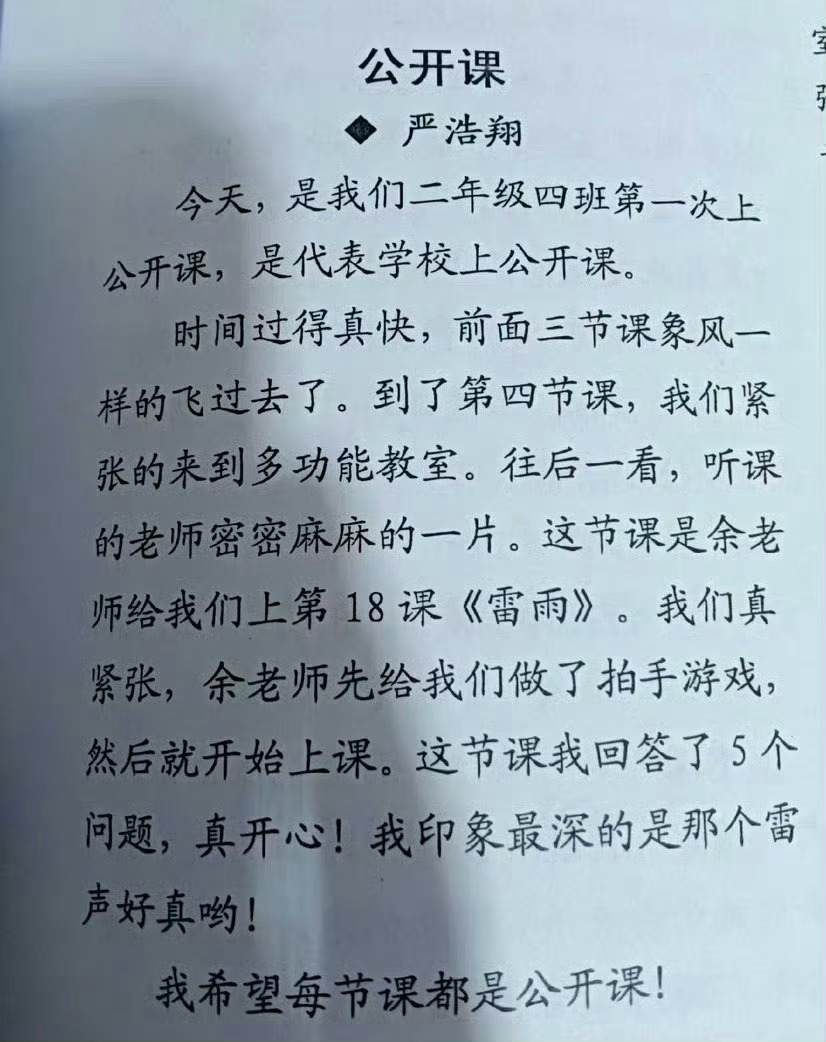 公开课
◆ 严浩翔
今天，是我们二年级四班第一次上
公开课，是代表学校上公开课。
时间过得真快，前面三节课象风一
样的飞过去了。到了第四节课，我们紧
张的来到多功能教室。往后一看，听课
的老师密密麻麻的一片。这节课是余老
师给我们上第 18 课《雷雨》。我们真
紧张，余老师先给我们做了拍手游戏，
然后就开始上课。这节课我回答了 5 个
问题，真开心！我印象最深的是那个雷
声好真哟！
我希望每节课都是公开课！